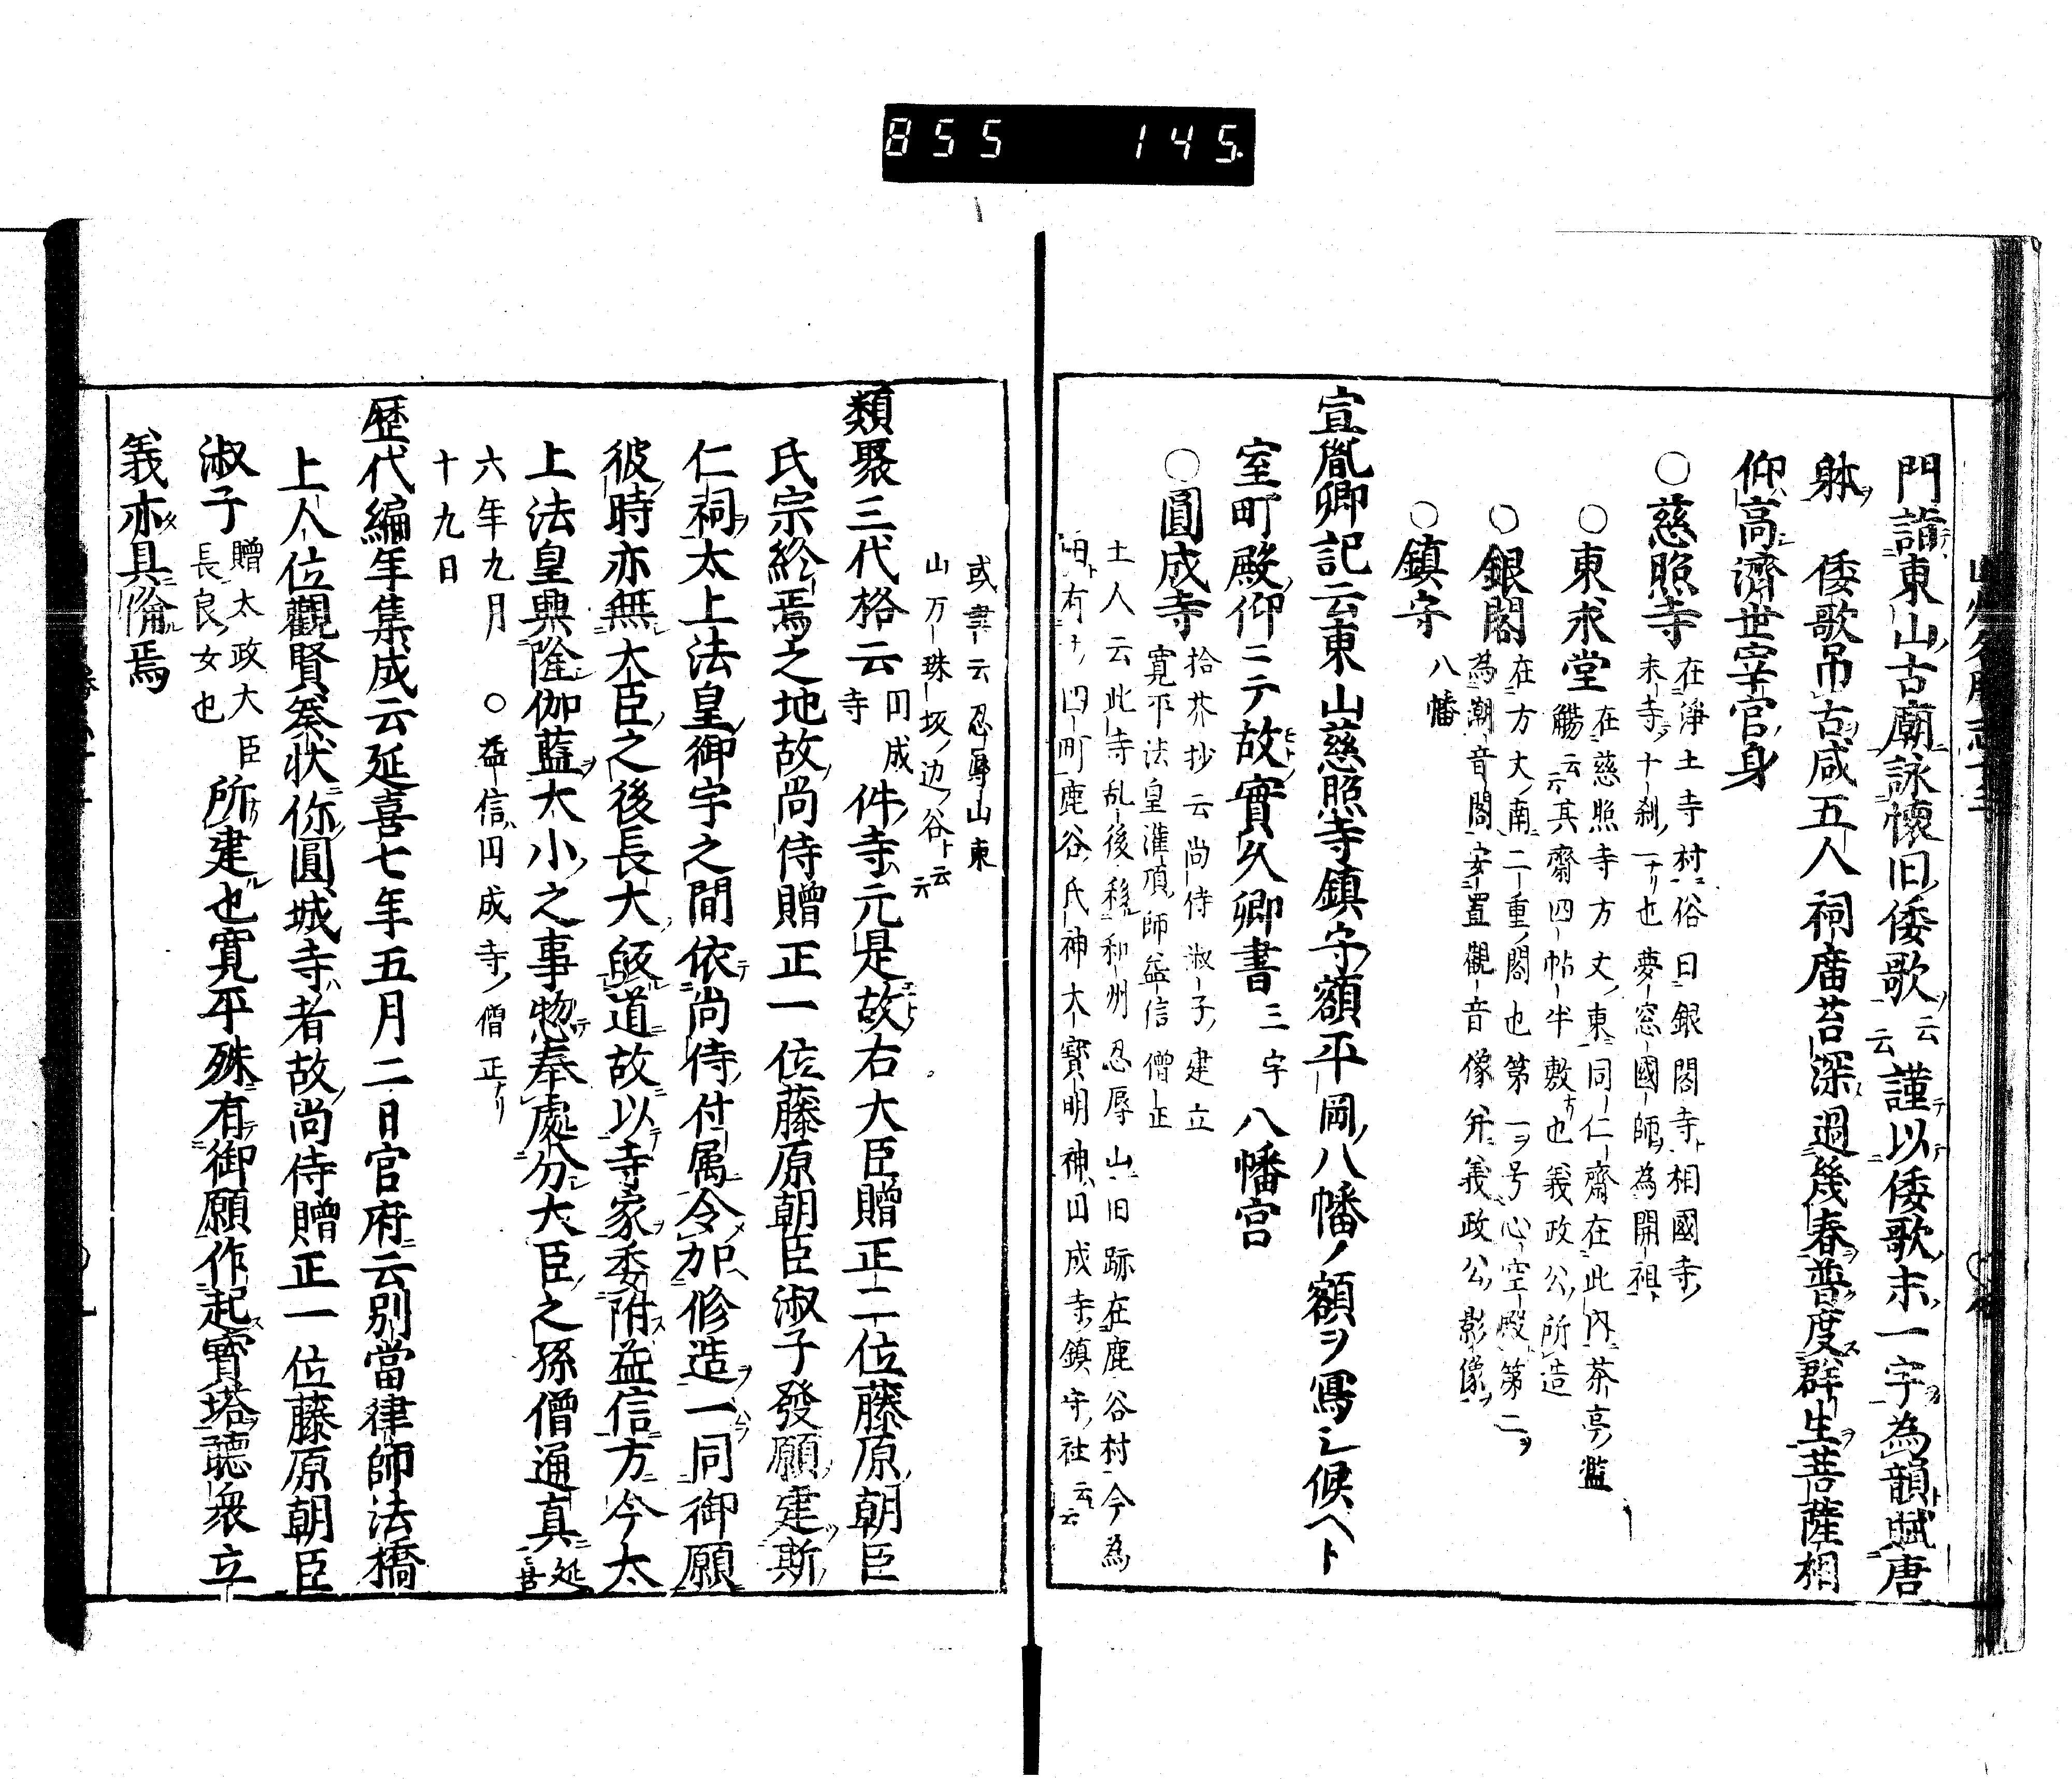 855 145
門詣東山古廟詠懐旧倭歌云云謹以倭歌末一字為韻賦唐
躰 倭歌吊古咸五人祠廣苔深過幾春普度群生菩薩相
仰高濟世宰官身
○慈照寺 在淨土寺村俗曰銀閣寺ト相國寺ノ
末寺十刹ノ一ナリ也夢窓國師為開祖ト
○東求堂 在慈照寺方丈ノ東ニ同仁齋在此内ニ茶亭ノ濫
觴云云其齋四帖半敷ナリ也義政公ノ所造
○銀閣 在方丈ノ南ニ二重ノ閣也第一ヲ号心空殿ト第二ヲ
為潮音閣安置觀音像并義政公ノ影像ヲ
○鎮守 八幡
宣胤卿記云東山慈照寺鎮守ノ額平岡ノ八幡ノ額ヲ寫シ候ヘト
室町殿ノ仰ニテ故實久卿書三字 八幡宮
○圓成寺 拾芥抄云尚侍淑子ノ建立
寛平法皇潅頂ノ師益信僧正
土人云此寺乱後移和州忍辱山ニ旧跡在鹿谷村今為
田ト有ナリ四町鹿谷ノ氏神大寳明神ハ円成寺ノ鎮守ノ社云云
或書云忍辱山東
山万珠坂ノ辺ノ谷ト云云
類聚三代格云円成寺件ノ寺ハ元是故右大臣贈正二位藤原ノ朝臣
氏宗終焉之地故尚侍贈正一位藤原朝臣淑子發願建斯
仁祠太上法皇御宇之間依尚侍ノ付属令加修造一同御願
彼時亦無大臣ノ之後長大皈道故以寺家委附益信方今太
上法皇興隆伽藍大小ノ之事惣奉處分大臣ノ之孫僧通真延喜
六年九月 ○益信ハ円成寺ノ僧正ナリ
十九日
歴代編年集成云延喜七年五月二日官府云別當律師法橋
上人位觀賢奏状ニ你圓城寺ハ者故尚侍贈正一位藤原朝臣
淑子贈太政大臣長良ノ女也所建也寛平殊有御願作起寳塔聴衆立
義亦具備焉